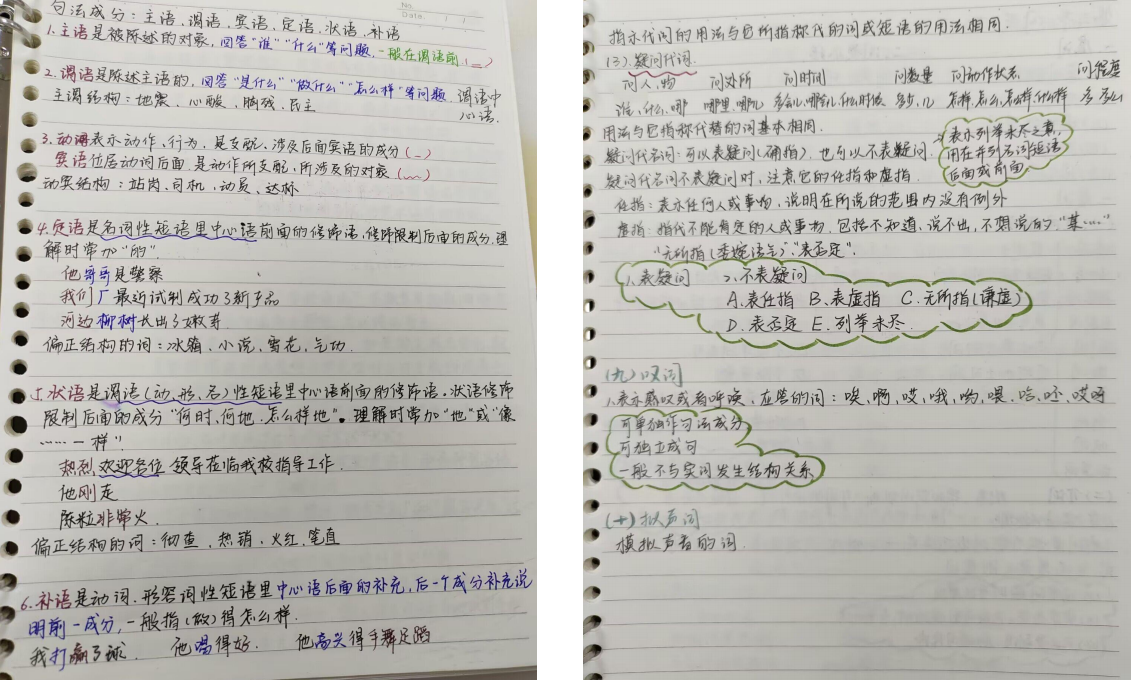 No.
Date. / /
句法成分：主语、谓语、宾语、定语、状语、补语
1.主语是被陈述的对象,回答"谁""什么"等问题,一般在谓语前.(=)
2.谓语是陈述主语的,回答"是什么""做什么""怎么样"等问题 谓语中心语.
主谓结构：地震、心酸、脑残、民主
3.动词表示动作、行为,是支配、涉及后面宾语的成分(_)
宾语位居动词后面,是动作所支配、所涉及的对象(﹏)
动宾结构：站岗、司机、动员、达标
4.定语是名词性短语里中心语前面的修饰语,修饰限制后面的成分,理
解时常加"的".
他哥哥是警察
我们厂最近试制成功了新产品
河边柳树长出了嫩芽
偏正结构的词：冰箱、小说、雪花、气功.
5.状语是谓语(动、形、名)性短语里中心语前面的修饰语。状语修饰
限制后面的成分"何时、何地、怎么样地"。理解时常加"地"或"像
……一样"
热烈欢迎各位领导莅临我校指导工作.
他刚走
陈粒非常火.
偏正结构的词：彻查、热销、火红、笔直
6.补语是动词、形容词性短语里中心语后面的补充,后一个成分补充说
明前一成分,一般指(做)得怎么样.
我打赢了球. 他唱得好. 他高兴得手舞足蹈
指示代词的用法与它所指称代的词或短语的用法相同.
(3)疑问代词.
问人、物 问处所 问时间 问数量 问动作状态 问程度
谁、什么、哪 哪里、哪儿 多会儿、哪会儿、什么时候 多少、几 怎样、怎么、怎么样、什么样 多 多么
用法与它指称代替的词基本相同.
疑问代名词：可以表疑问(确指),也可以不表疑问.
→表示列举未尽之意,
用在并列名词短语
后面或前面
疑问代名词不表疑问时,注意它的任指和虚指.
任指：表示任何人或事物,说明在所说的范围内没有例外
虚指：指代不能肯定的人或事物,包括不知道、说不出,不想说的."某……"
"无所指(委婉语气)"、"表否定".
1.表疑问 2.不表疑问
A.表任指 B.表虚指 C.无所指(谦虚)
D.表否定 E.列举未尽.
(九)叹词
1.表示感叹或者呼唤、应答的词：唉、啊、哎、哦、哟、喂、哈、呸、哎呀
可单独作句法成分
可独立成句
一般不与实词发生结构关系
(十)拟声词
模拟声音的词.